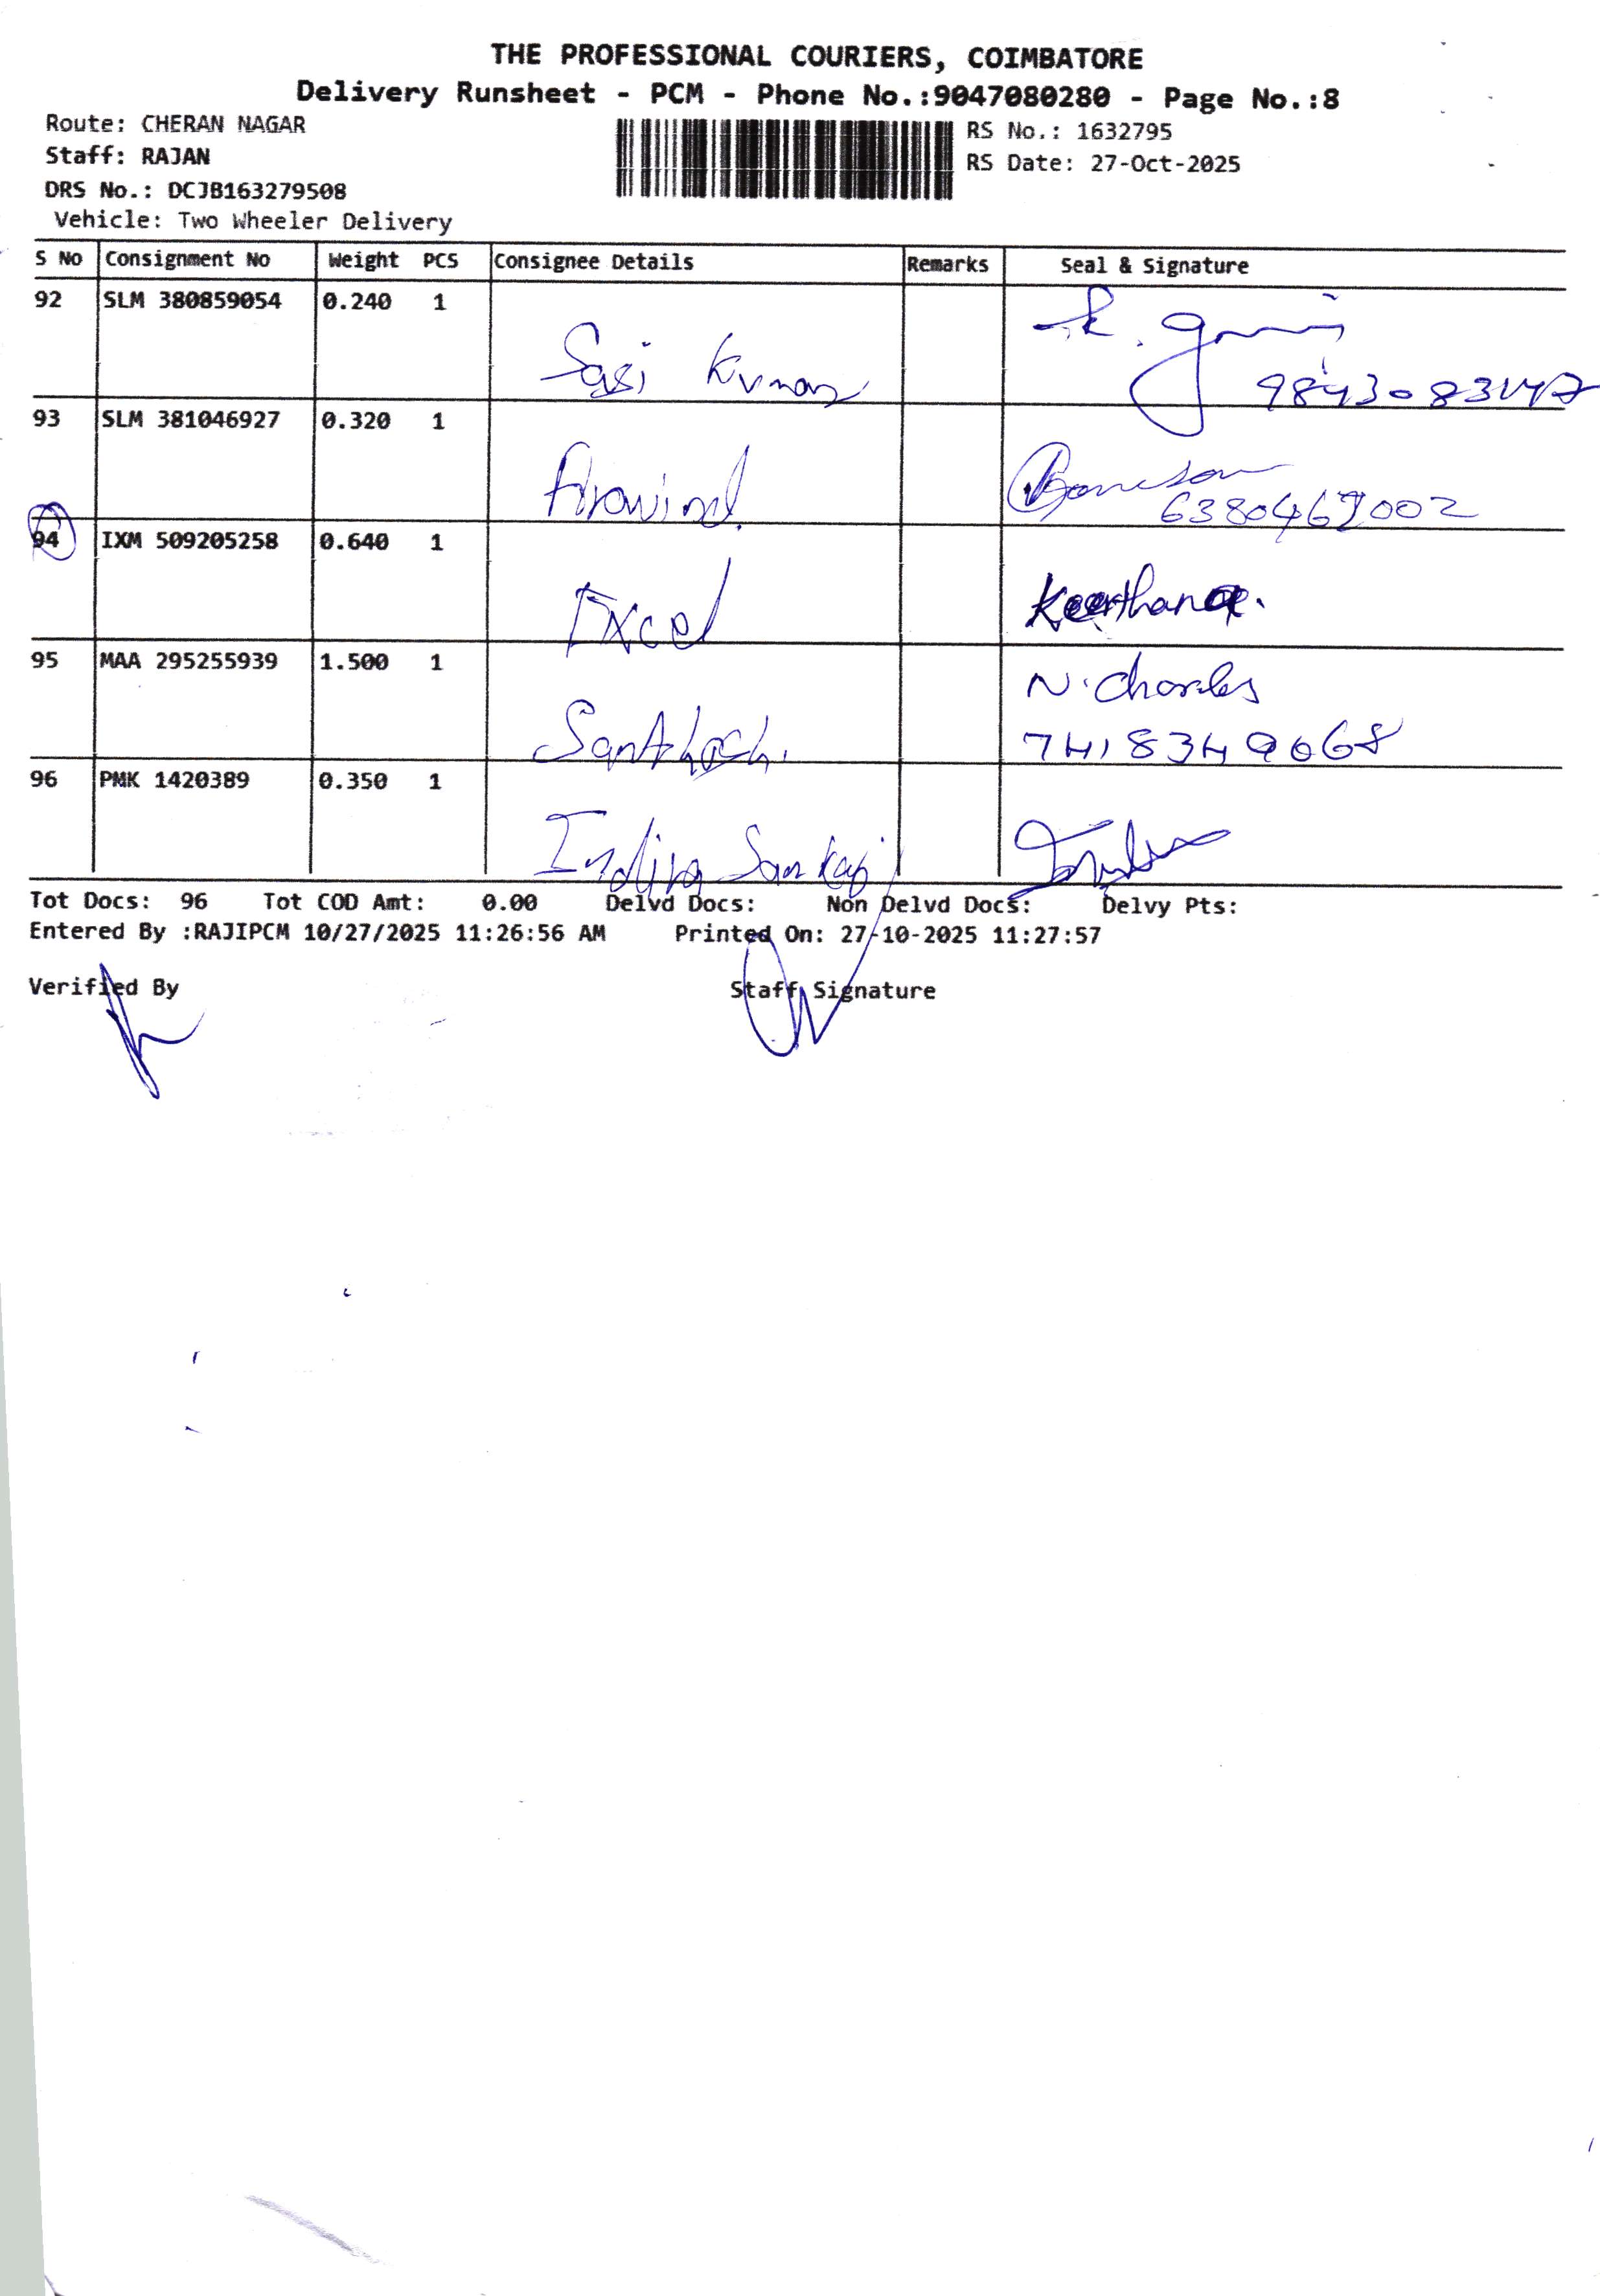 THE PROFESSIONAL COURIERS, COIMBATORE
Delivery Runsheet - PCM - Phone No.:9047080280 - Page No.:8
Route: CHERAN NAGAR
RS No.: 1632795
Staff: RAJAN
RS Date: 27-Oct-2025
DRS No.: DCJB163279508
Vehicle: Two Wheeler Delivery
S No Consignment No Weight PCS Consignee Details Remarks Seal & Signature
92 SLM 380859054 0.240 1
Sasi Kumar
93 SLM 381046927 0.320 1
Aravind.
94 IXM 509205258 0.640 1
Excel Keerthana.
95 MAA 295255939 1.500 1 N. Charles
Santhosh. 7418349068
96 PMK 1420389 0.350 1
Tot Docs: 96 Tot COD Amt: 0.00 Delvd Docs: Non Delvd Docs: Delvy Pts:
Entered By :RAJIPCM 10/27/2025 11:26:56 AM Printed On: 27-10-2025 11:27:57
Verified By Staff Signature